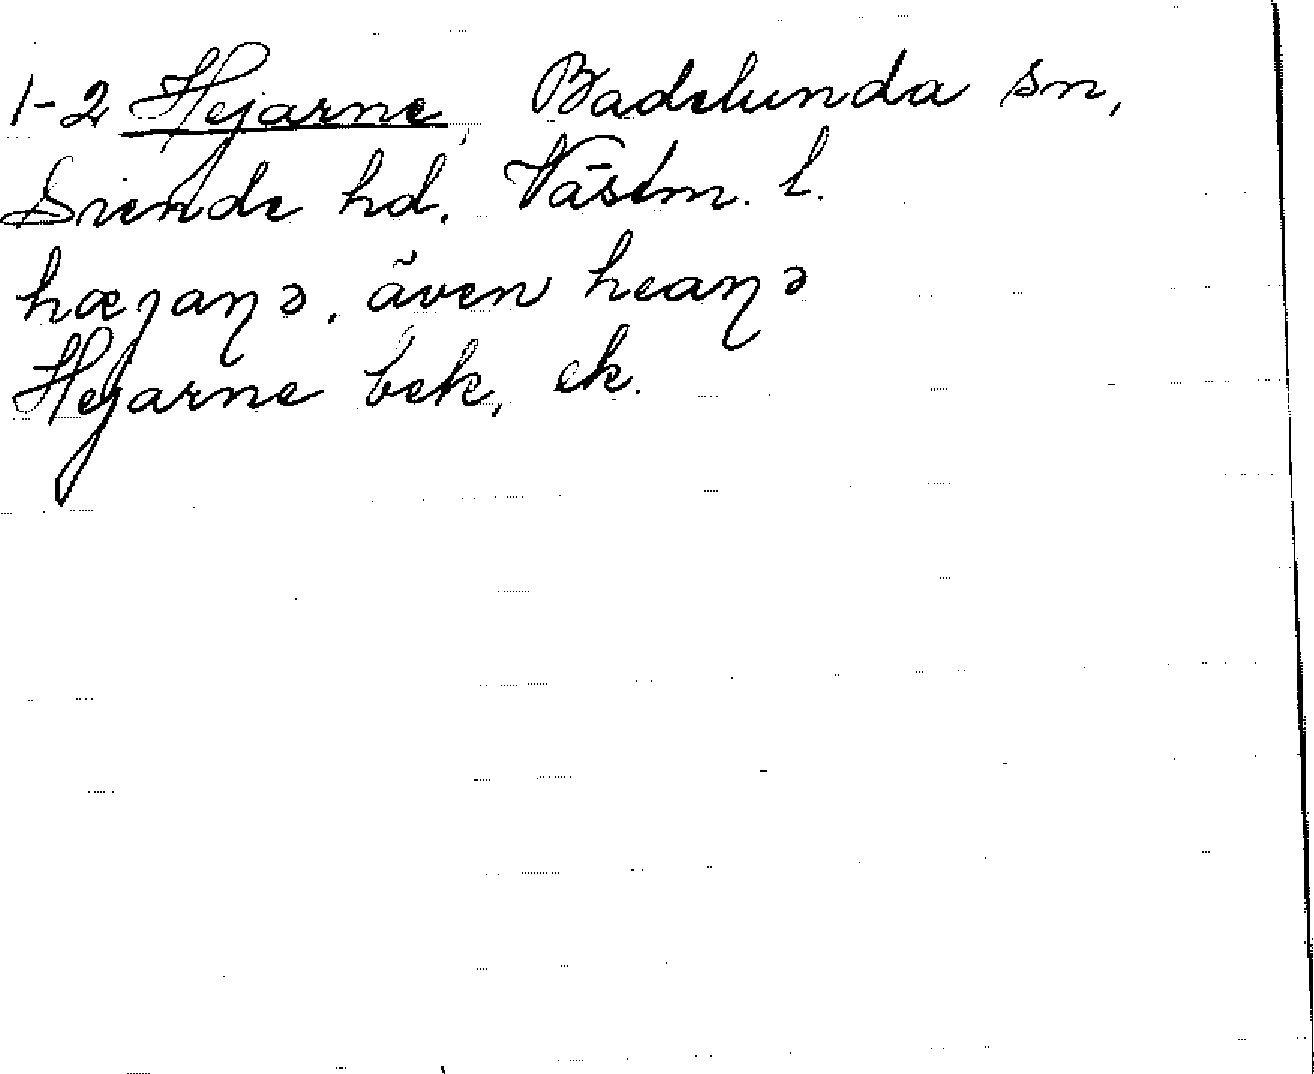 1-2 Hejarne, Badelunda sn,
Siende hd. Västm. l.
hæjaꞃə, även heaꞃə
Hejarne bek, ek.